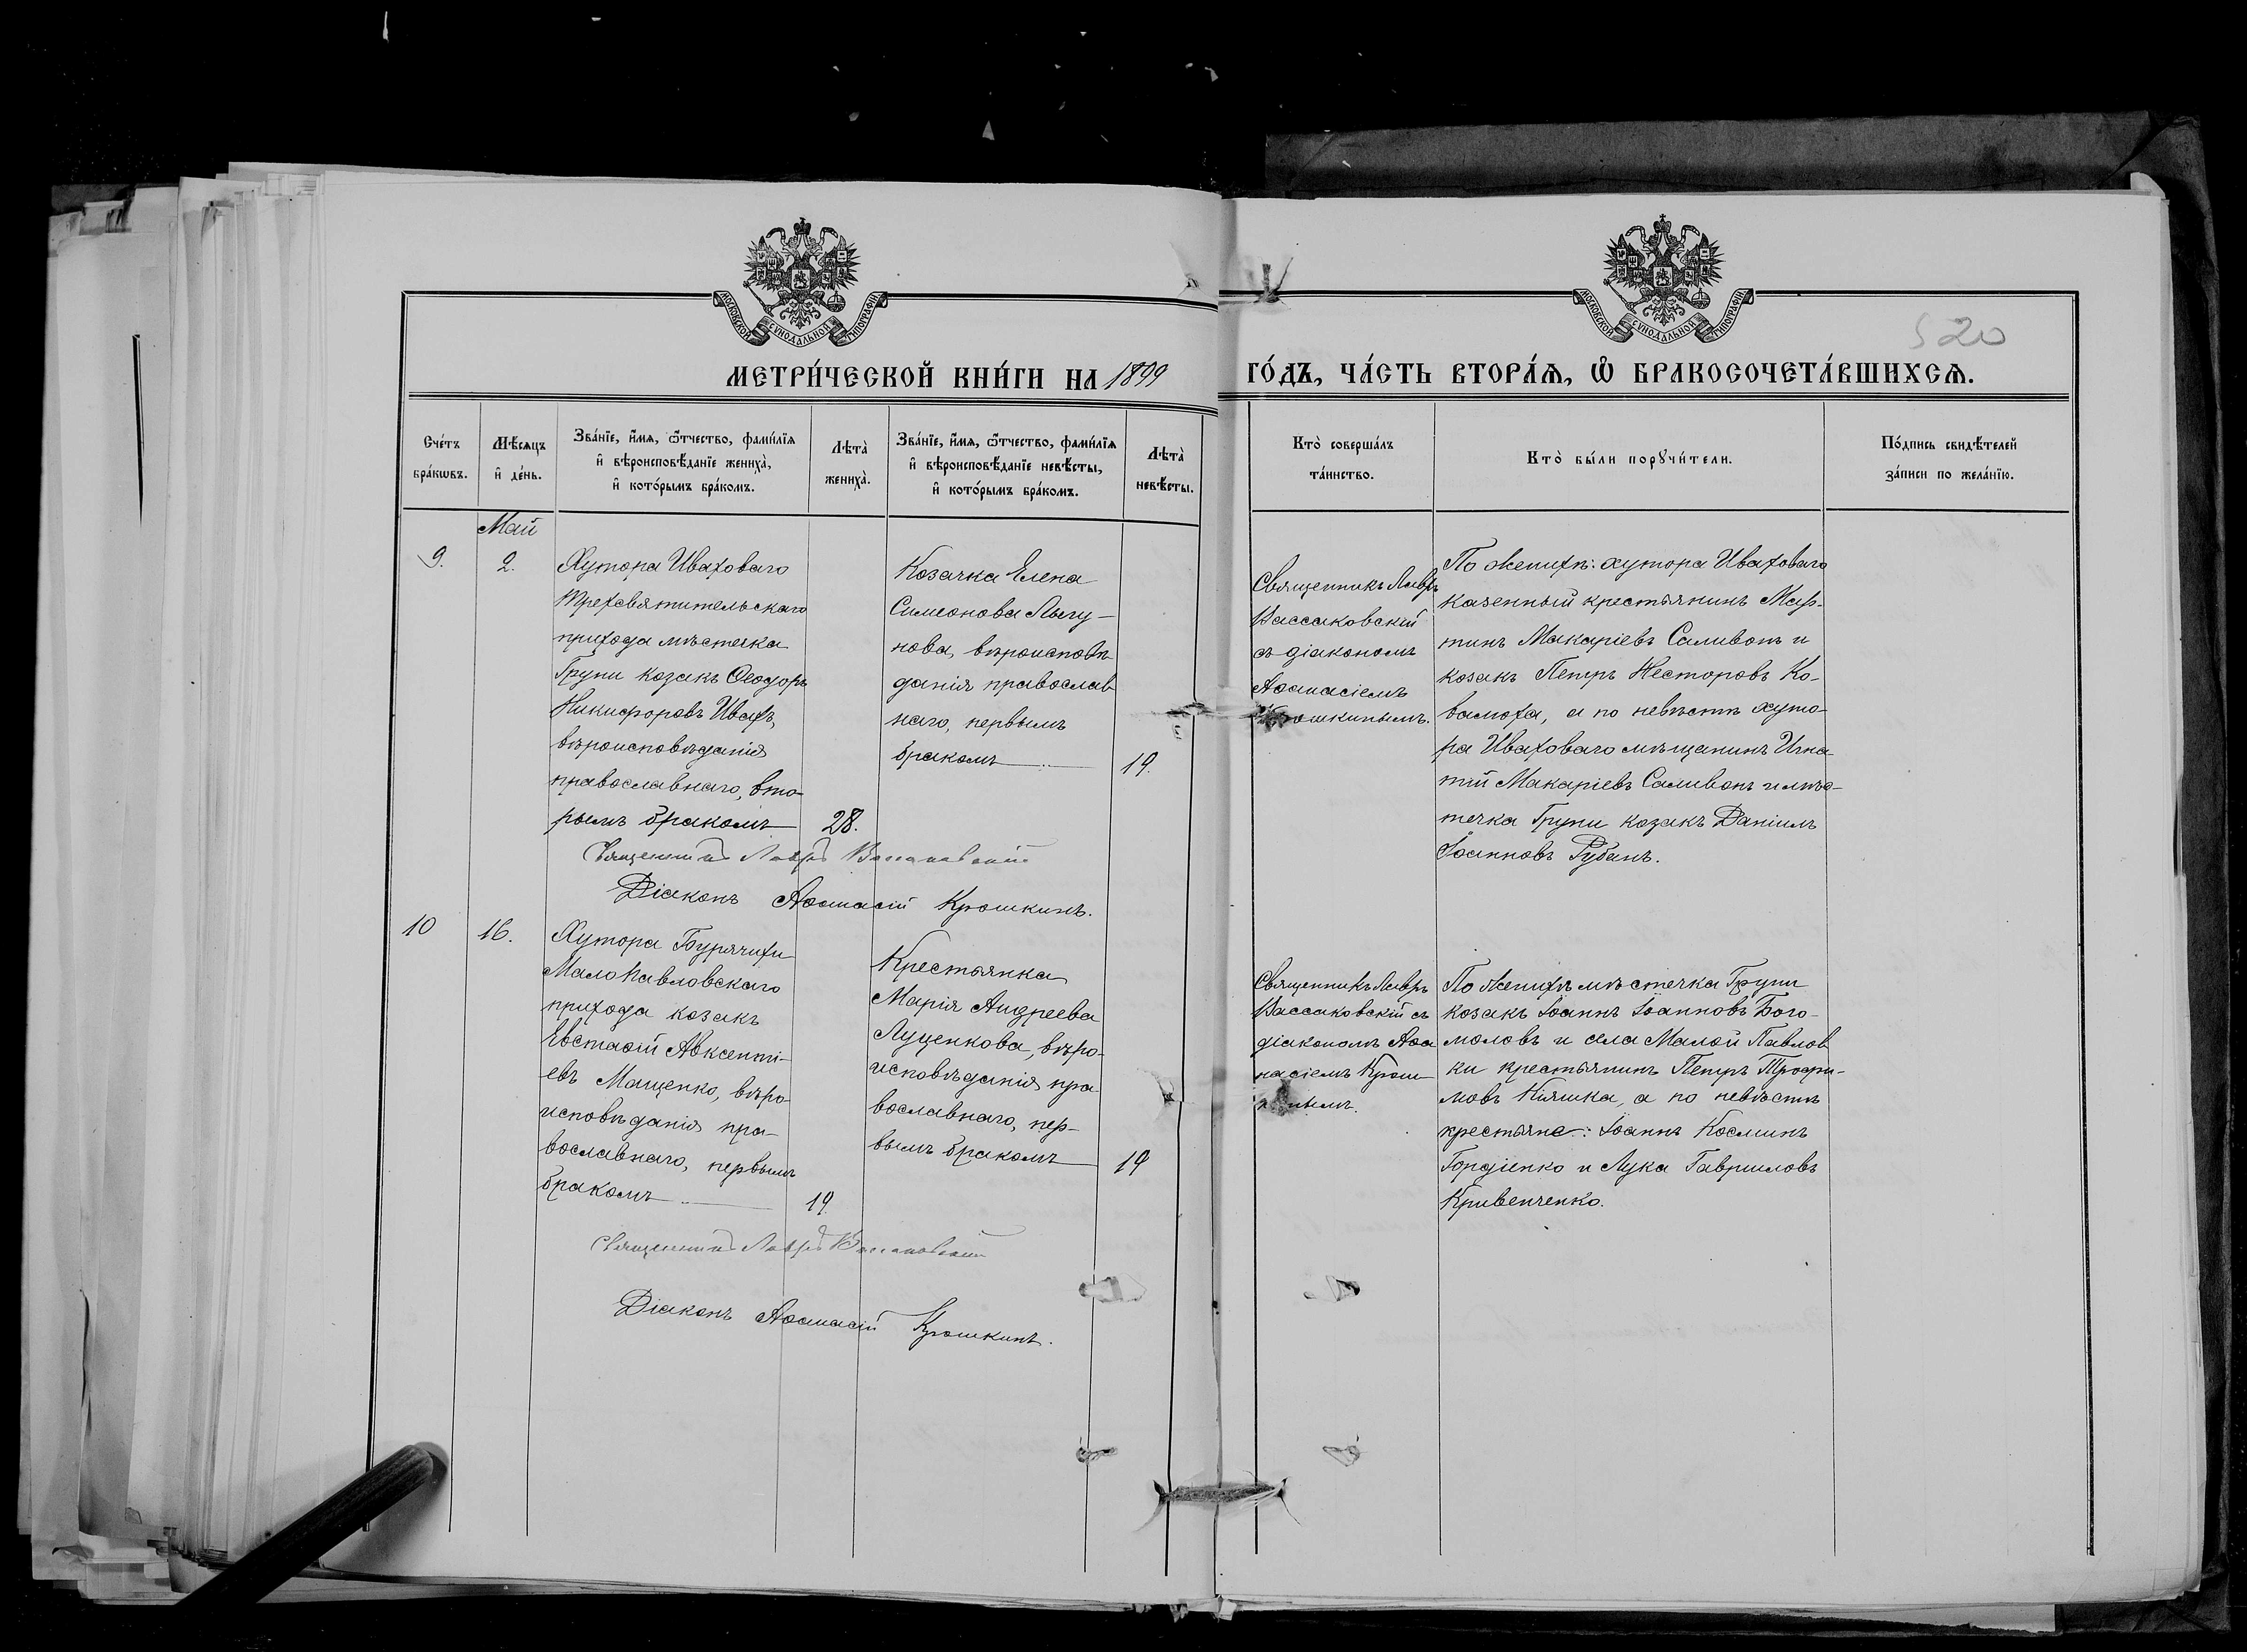 МОСКОВСКОЙ СѴНОДАЛЬНОЙ ТИПОГРАФІИ
МОСКОВСКОЙ СѴНОДАЛЬНОЙ ТИПОГРАФІИ
520
МЕТРИ́ЧЕСКОЙ КНИ́ГИ НА 1899 ГО́ДЪ, ЧА́СТЬ ВТОРА́Ѧ, Ѡ҆ БРАКОСОЧЕТА́ВШИХСѦ.
Сче́тъ
бра́кѡвъ.
Мѣ́сѧцъ
и҆ де́нь.
Зва́нїе, и҆́мѧ, ѻ҆́тчество, фами́лїѧ
и҆ вѣроисповѣ́данїе жениха̀,
и҆ кото́рымъ бра́комъ.
Лѣта̀
жениха̀.
Зва́нїе, и҆́мѧ, ѻ҆́тчество, фами́лїѧ
и҆ вѣроисповѣ́данїе невѣ́сты,
и҆ кото́рымъ бра́комъ.
Лѣта̀
невѣ́сты.
Кто̀ соверша́лъ
та́инство.
Кто̀ бы́ли порꙋчи́тели.
По́дпись свидѣ́телей
за́писи по жела́нїю.
Май
9.
2.
Хутора Иваховаго
Трехсвятительскаго
прихода мѣстечка
Груни козакъ Ѳеодоръ
Никифоровъ Ивахъ,
вѣроисповѣданія
православнаго, вто-
рымъ бракомъ
28.
Козачка Елена
Симеонова Лыгу-
нова, вѣроисповѣ-
данія православ-
наго, первымъ
бракомъ
19.
Священникъ Лавръ
Вассаковскій
съ діакономъ
Аѳанасіемъ
Крошкинымъ.
По женихѣ: хутора Иваховаго
казенный крестьянинъ Мар-
тинъ Макаріевъ Саливонъ и
козакъ Петръ Несторовъ Ко-
валюха, а по невѣстѣ хуто-
ра Иваховаго мѣщанинъ Игна-
тій Макаріевъ Саливонъ и мѣс-
течка Груни козакъ Даніилъ
Іоанновъ Рубанъ.
Священникъ Лавръ Вассаковскій
Діаконъ Аѳанасій Крошкинъ.
10
16.
Хутора Бурячихи
МалоПавловскаго
прихода козакъ
Евстаѳій Авксенті-
евъ Мащенко, вѣро-
исповѣданія пра-
вославнаго, первымъ
бракомъ
19.
Крестьянка
Марія Андреева
Луценкова, вѣро-
исповѣданія пра
вославнаго, пер-
вымъ бракомъ
19
Священникъ Лавръ
Вассаковскій съ
діакономъ Аѳа
насіемъ Крош-
кинымъ.
По женихѣ мѣстечка Груни
козакъ Іоаннъ Іоанновъ Бого-
моловъ и села Малой Павлов
ки крестьянинъ Петръ Трофи-
мовъ Кияшка, а по невѣстѣ
крестьяне: Іоаннъ Косминъ
Гордіенко и Лука Гавриловъ
Кривенченко.
Священникъ Лавръ Вассаковскій
Діаконъ Аѳанасій Крошкинъ.